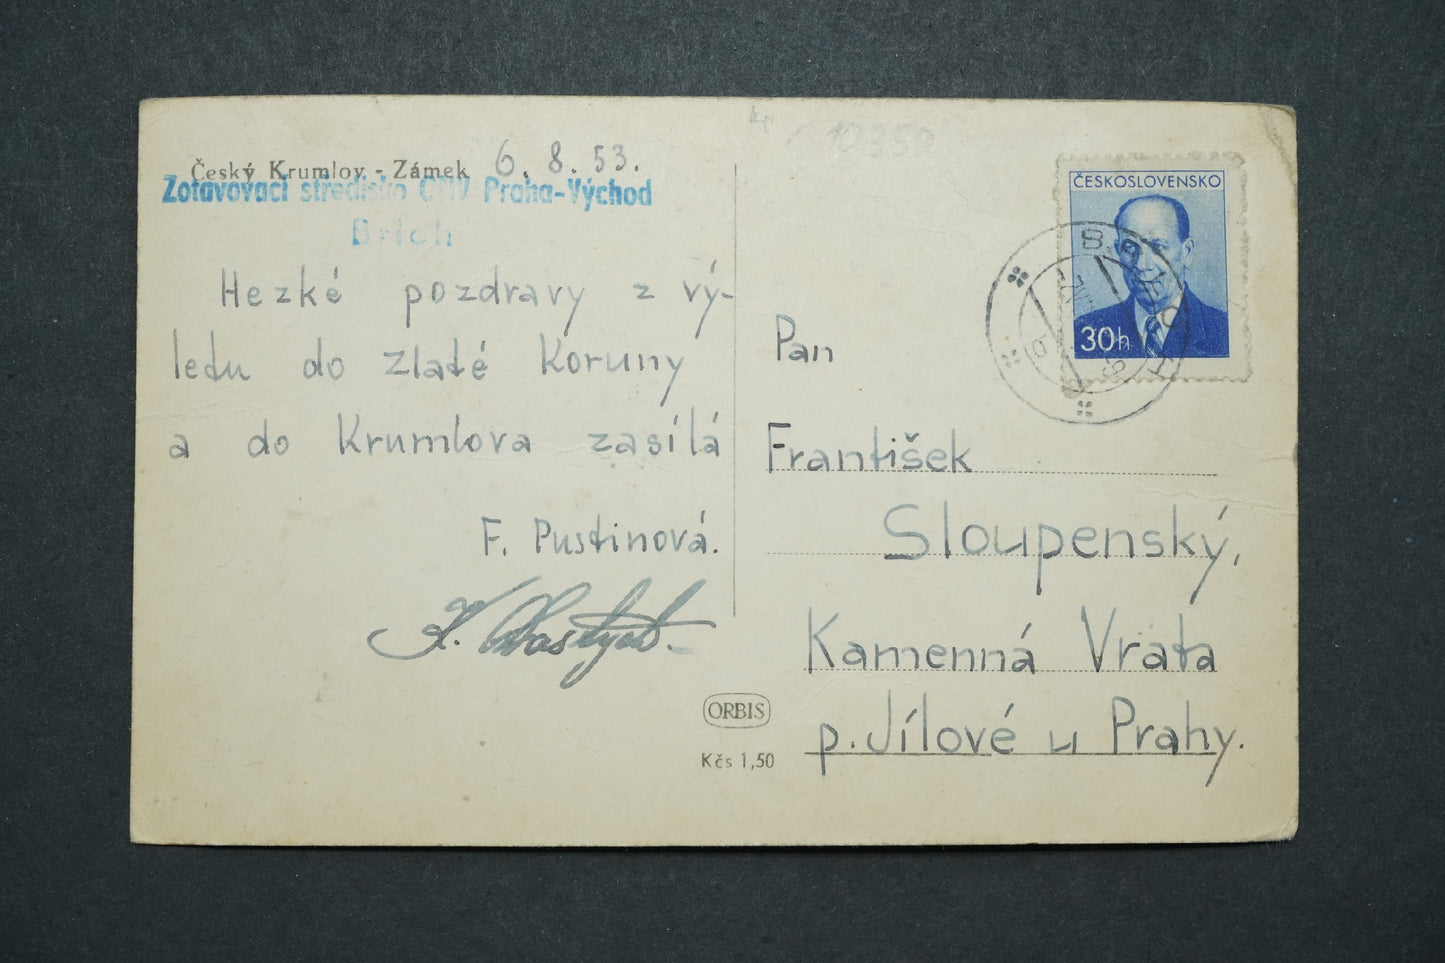 Český Krumlov - Zámek 6. 8. 53.
Zotavovací středisko ONV Praha-Východ
Hezké pozdravy z vý-
letu do Zlaté Koruny
a do Krumlova zasílá
F. Pustinová.
K.
ORBIS
Kčs 1,50
10350
ČESKOSLOVENSKO
30h
Pan
František
Sloupenský,
Kamenná Vrata
p. Jílové u Prahy.